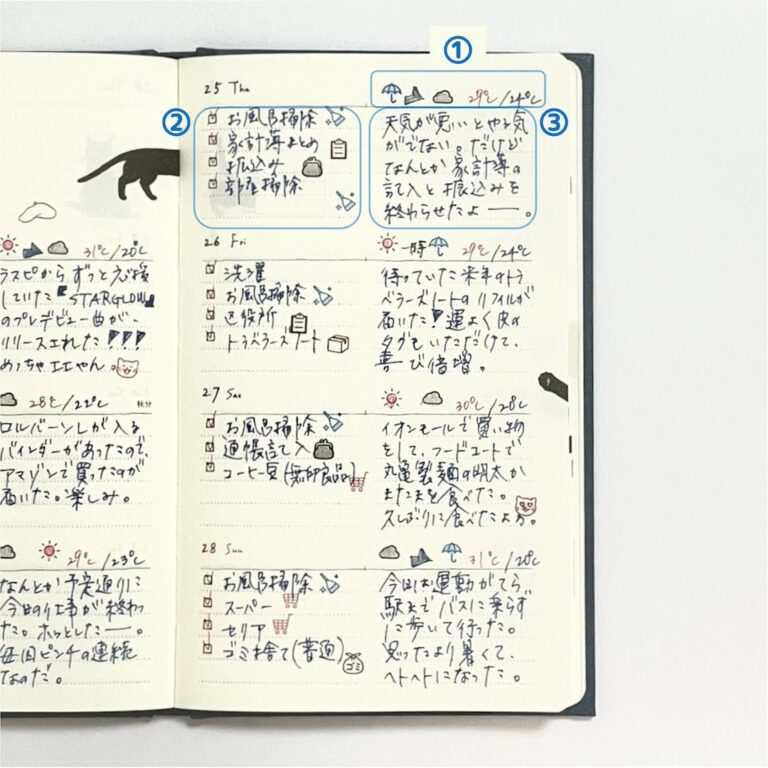 ①
25 Thu
29℃/24℃
②
お風呂掃除
家計簿まとめ
振込み
部屋掃除
③
天気が悪いとやる気
がでない。だけど
なんとか家計簿の
記入と振込みを
終わらせたよー。
31℃/20℃
ラスピからずっと応援
していた『STARGLOW』
のプレデビュー曲が、
リリースされた!!!
めっちゃエエやん。
26 Fri
一時
29℃/24℃
洗濯
お風呂掃除
区役所
トラベラーズノート
待っていた来年のトラ
ベラーズノートのリフィルが
届いた!運よく皮の
タグもいただけて、
喜び倍増。
28℃/22℃
秋分
ロルバーンLが入る
バインダーがあったので、
アマゾンで買ったのが
届いた。楽しみ。
27 Sat
30℃/28℃
お風呂掃除
通帳記入
コーヒー豆(無印良品)
イオンモールで買い物
をして、フードコートで
丸亀製麺の明太か
またまを食べた。
久しぶりに食べたよぉ。
29℃/23℃
なんとか予定通りに
今日の仕事が終わっ
た。ホッとしたー。
毎回ピンチの連続
なのだ。
28 Sun
31℃/20℃
お風呂掃除
スーパー
セリア
ゴミ捨て(普通)
ゴミ
今日は運動がてら
駅までバスに乗らず
に歩いて行った。
思ったより暑くて、
ヘトヘトになった。